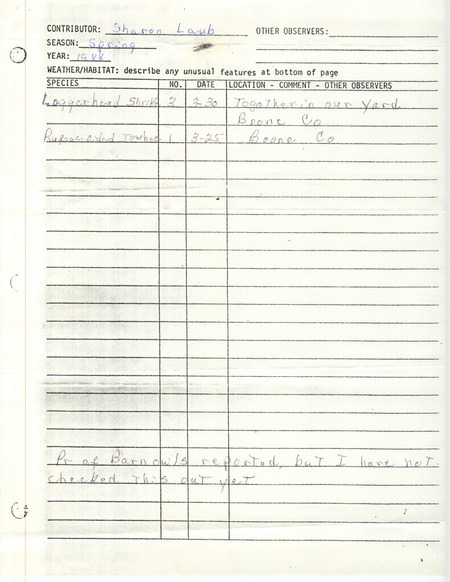 CONTRIBUTOR: Sharon Laub OTHER OBSERVERS:
SEASON: Spring
YEAR: 1988
WEATHER/HABITAT: describe any unusual features at bottom of page
SPECIES NO. DATE LOCATION - COMMENT - OTHER OBSERVERS
Loggerhead Shrike 2 2-30 Together in our yard
Boone Co
Rufous-sided Towhee 1 3-25 Boone Co
Pr of Barn owls reported, but I have not
checked this out yet